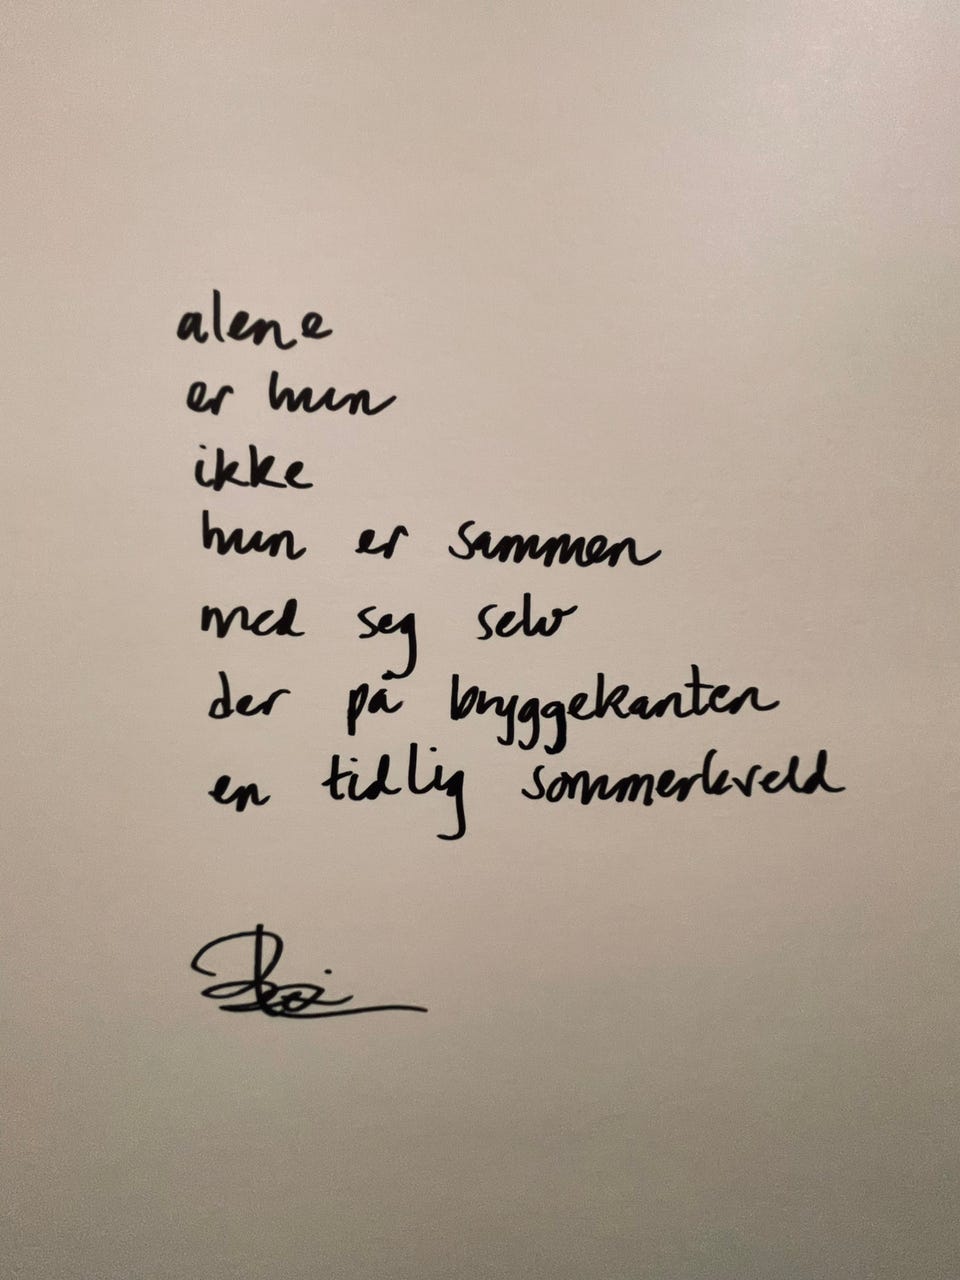 alene
er hun
ikke
hun er sammen
med seg selv
der på bryggekanten
en tidlig sommerkveld